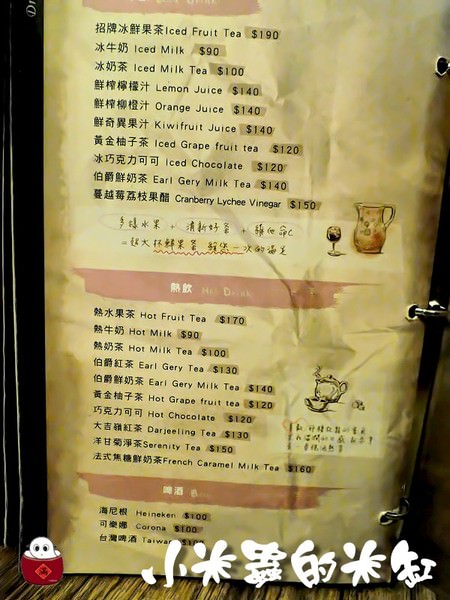 Drink
招牌冰鮮果茶Iced Fruit Tea $190
冰牛奶 Iced Milk $90
冰奶茶 Iced Milk Tea $100
鮮榨檸檬汁 Lemon Juice $140
鮮榨柳橙汁 Orange Juice $140
鮮奇異果汁 Kiwifruit Juice $140
黃金柚子茶 Iced Grape fruit tea $120
冰巧克力可可 Iced Chocolate $120
伯爵鮮奶茶 Earl Gery Milk Tea $140
蔓越莓荔枝果醋 Cranberry Lychee Vinegar $150
多樣水果 + 清新好茶 + 維他命C
=超大杯鮮果茶 一次的滿足
熱飲 Hot Drink
熱水果茶 Hot Fruit Tea $170
熱牛奶 Hot Milk $90
熱奶茶 Hot Milk Tea $100
伯爵紅茶 Earl Gery Tea $130
伯爵鮮奶茶 Earl Gery Milk Tea $140
黃金柚子茶 Hot Grape fruit tea $120
巧克力可可 Hot Chocolate $120
大吉嶺紅茶 Darjeeling Tea $130
洋甘菊淨茶Serenity Tea $150
法式焦糖鮮奶茶French Caramel Milk Tea $160
啤酒
海尼根 Heineken $100
可樂娜 Corona $100
台灣啤酒 Taiwan $100
小米蟲的米缸